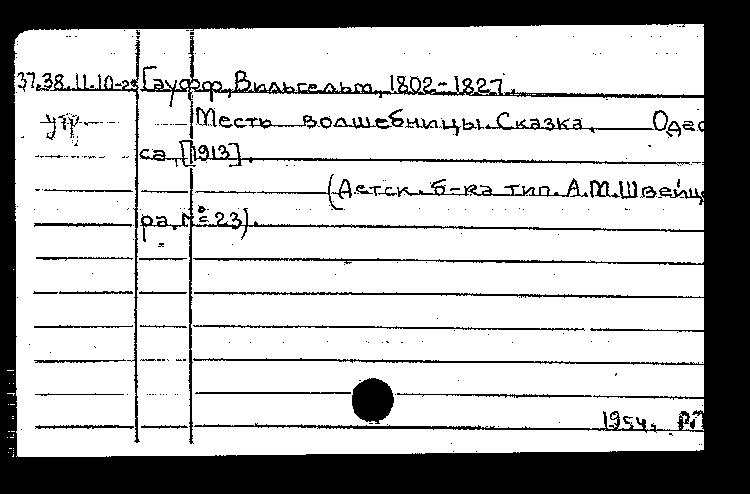 37.38.11.10-23 Гауфф, Вильгельм, 1802-1827.
утр. Месть волшебницы. Сказка. Одес
са, [1913].
(Детск. б-ка тип. А.М.Швейце
ра, № 23).
1954.